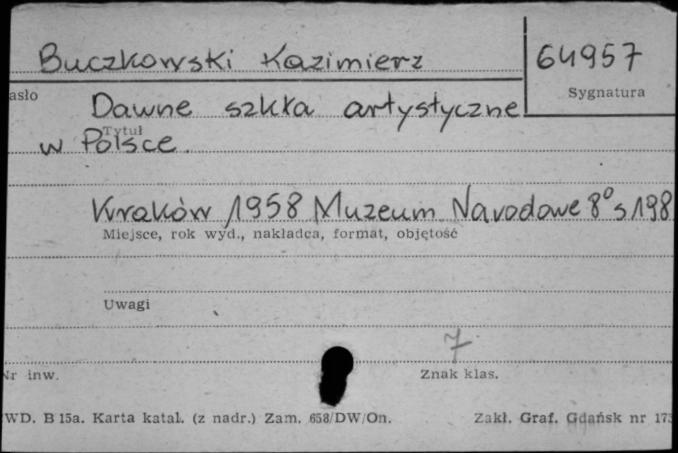 Buczkowski Kazimierz
64957
asło
Sygnatura
Dawne szkła artystyczne
Tytuł
w Polsce.
Kraków 1958 Muzeum Narodowe 8° s 198
Miejsce, rok wyd., nakładca, format, objętość
Uwagi
7
Nr inw.
Znak klas.
WD. B 15a. Karta katal. (z nadr.) Zam. 658/DW/On.
Zakł. Graf. Gdańsk nr 173